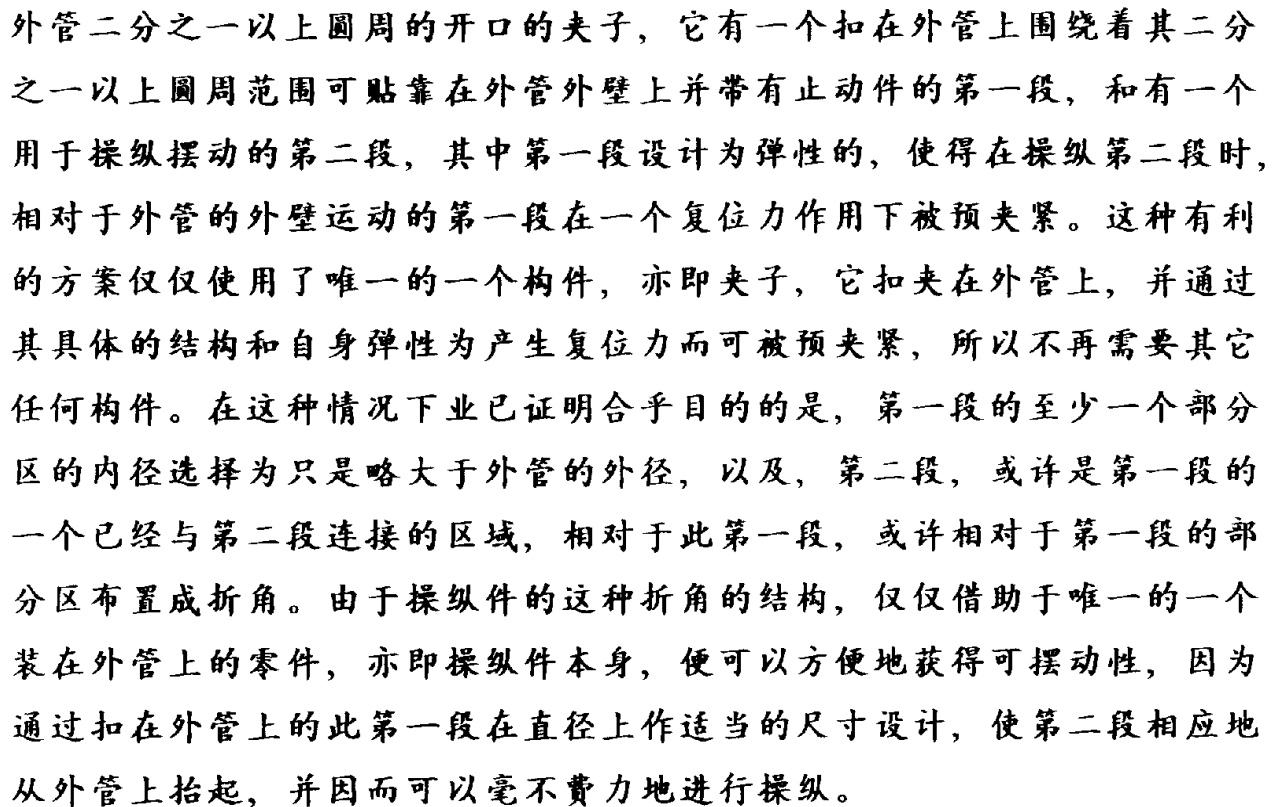 外管二分之一以上圆周的开口的夹子，它有一个扣在外管上围绕着其二分
之一以上圆周范围可贴靠在外管外壁上并带有止动件的第一段，和有一个
用于操纵摆动的第二段，其中第一段设计为弹性的，使得在操纵第二段时，
相对于外管的外壁运动的第一段在一个复位力作用下被预夹紧。这种有利
的方案仅仅使用了唯一的一个构件，亦即夹子，它扣夹在外管上，并通过
其具体的结构和自身弹性为产生复位力而可被预夹紧，所以不再需要其它
任何构件。在这种情况下业已证明合乎目的的是，第一段的至少一个部分
区的内径选择为只是略大于外管的外径，以及，第二段，或许是第一段的
一个已经与第二段连接的区域，相对于此第一段，或许相对于第一段的部
分区布置成折角。由于操纵件的这种折角的结构，仅仅借助于唯一的一个
装在外管上的零件，亦即操纵件本身，便可以方便地获得可摆动性，因为
通过扣在外管上的此第一段在直径上作适当的尺寸设计，使第二段相应地
从外管上抬起，并因而可以毫不费力地进行操纵。